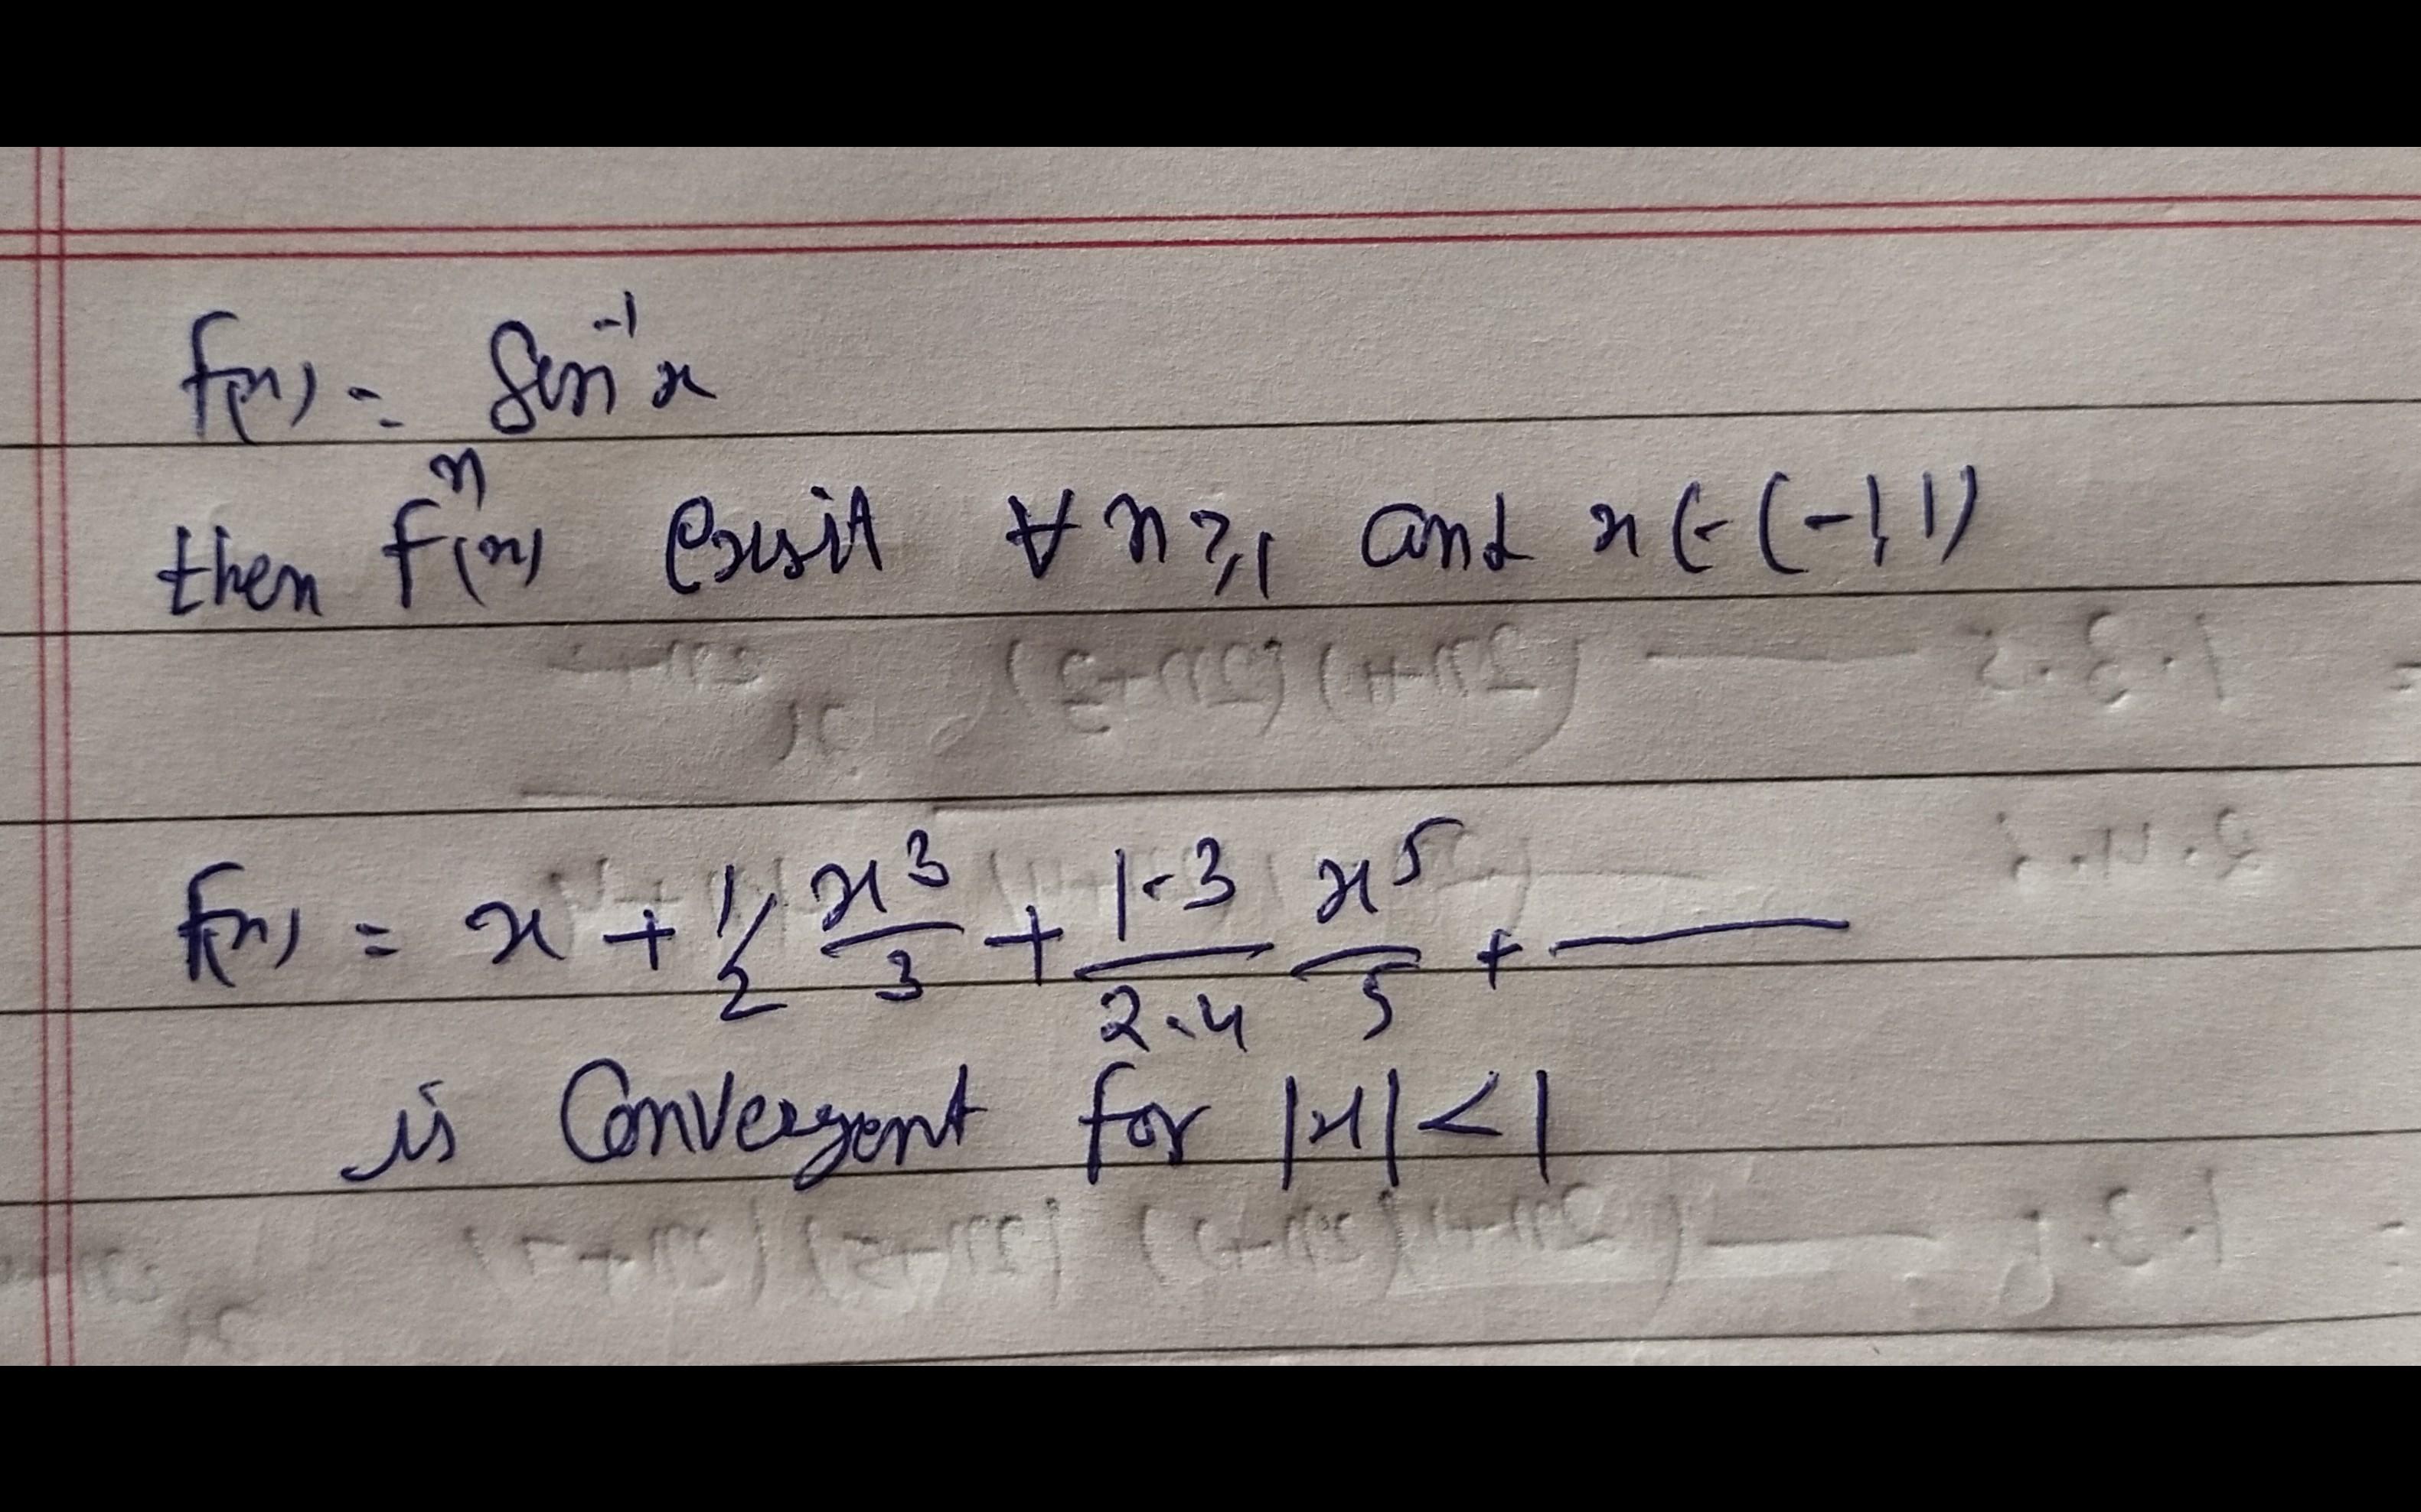 f(x) = Sin⁻¹x
then fⁿ(x) Exsit ∀ n ≥ 1 and x ∈ (-1, 1)
f(x) = x + 1/2 x³/3 + 1·3/2·4 x⁵/5 + ———
is Convergent for |x| < 1